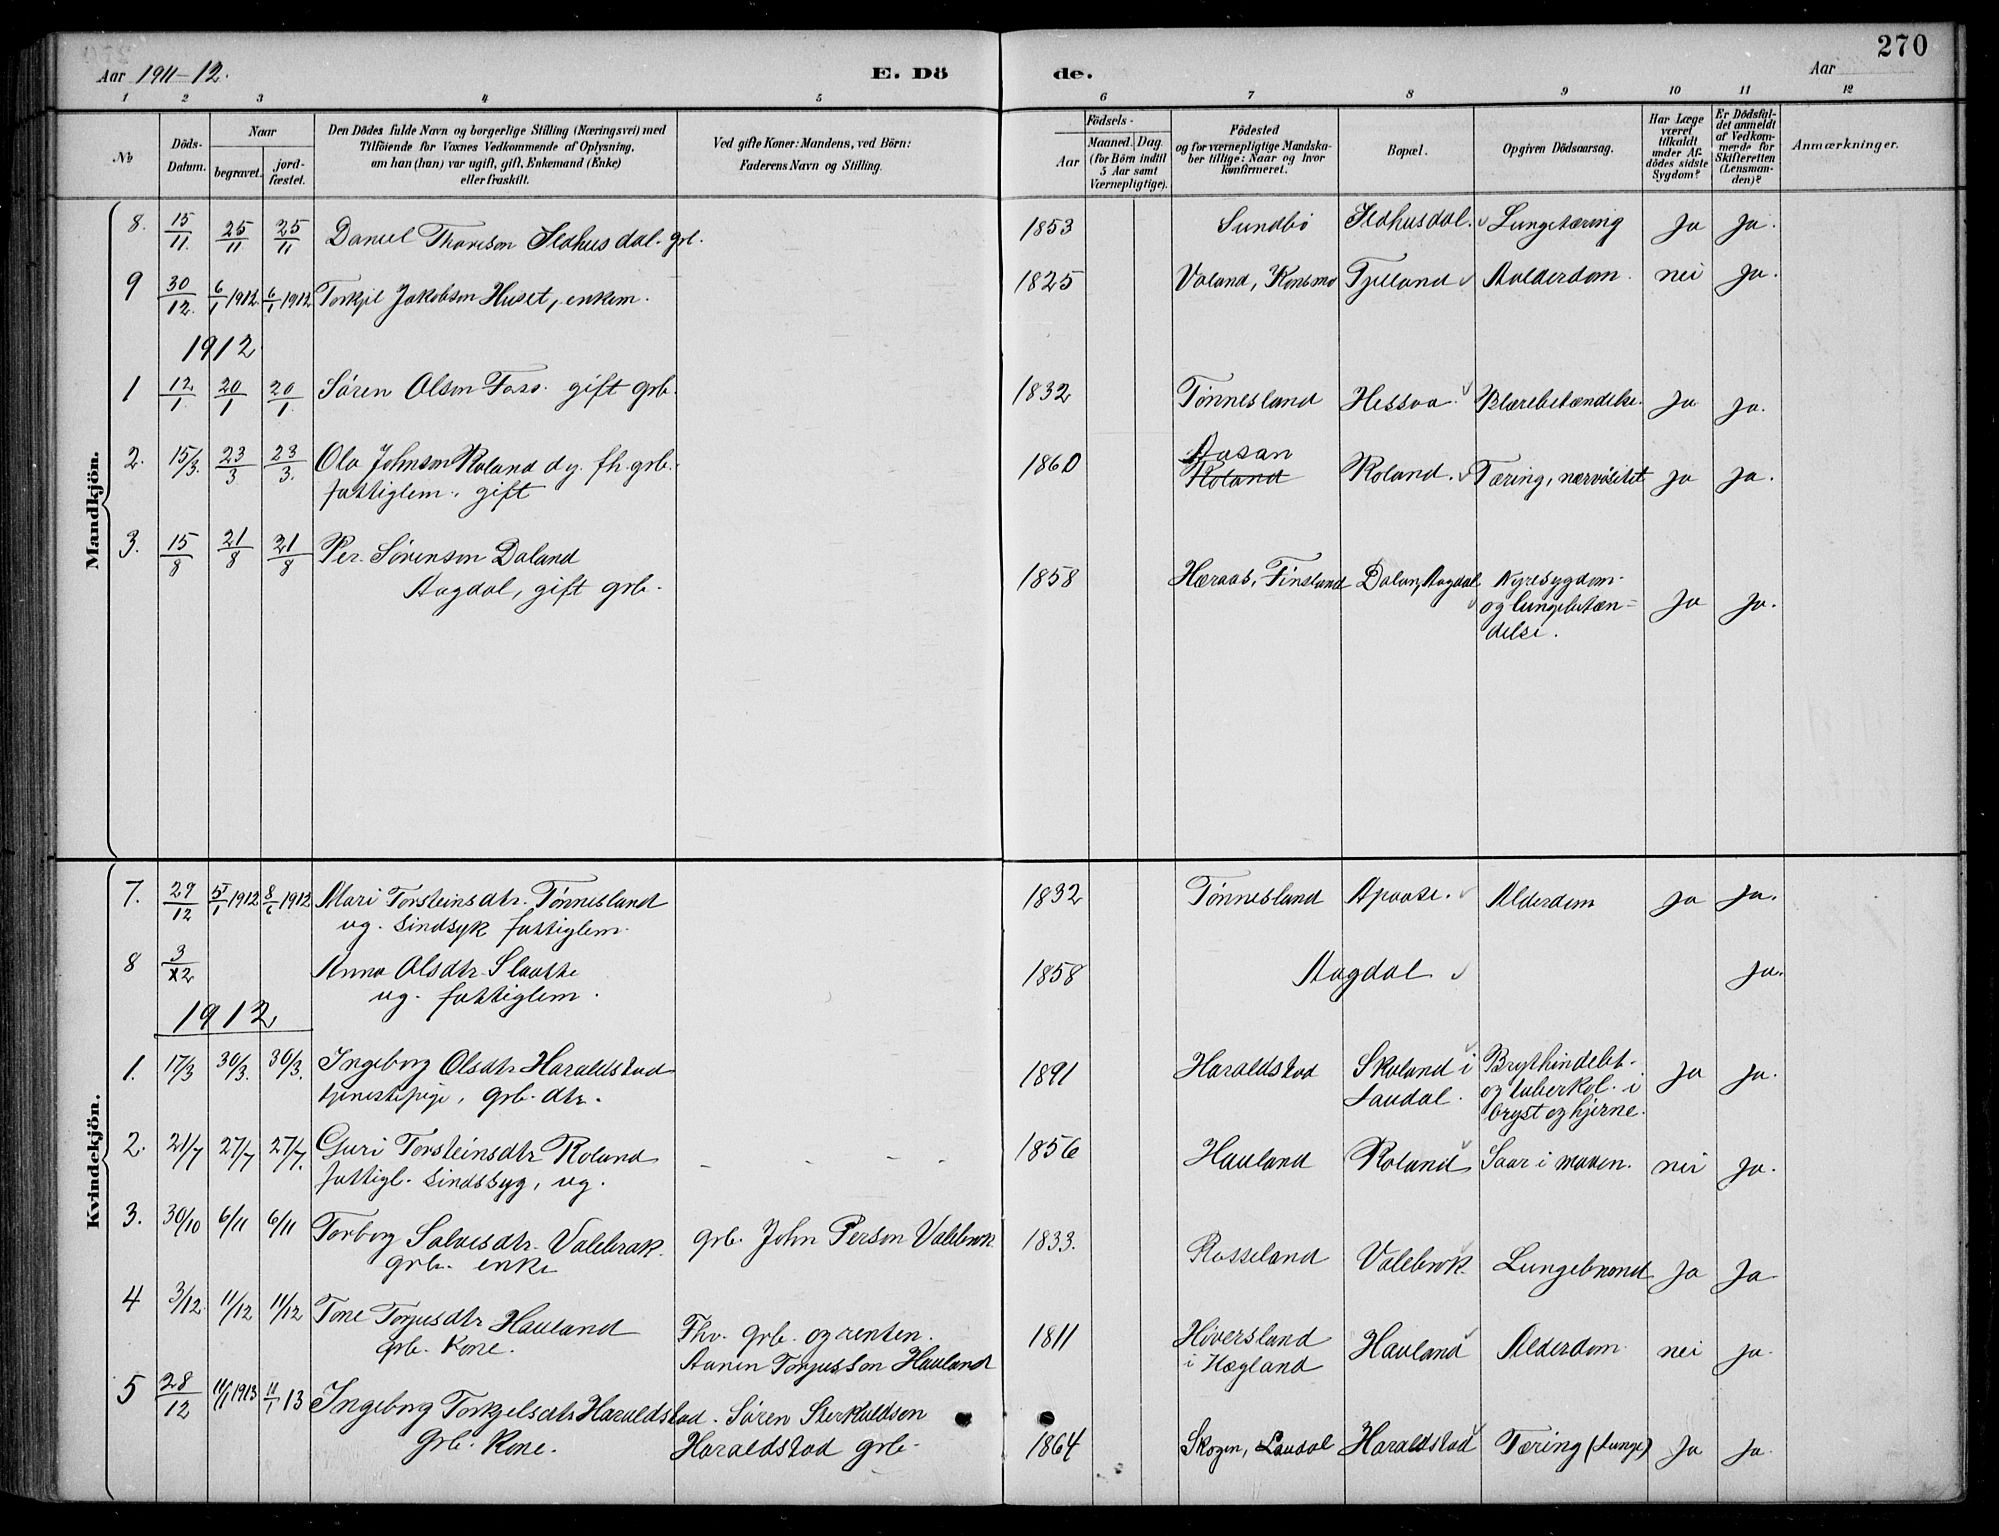 270
Aar 1911-12. E. Dö de. Aar
1 2 3 4 5 6 7 8 9 10 11 12
No
Döds-Datum.
Naar
begravet.
jord-fæstet.
Den Dödes fulde Navn og borgerlige Stilling (Næringsvei) med
Tilföiende for Voxnes Vedkommende af Oplysning,
om han (hun) var ugift, gift, Enkemand (Enke)
eller fraskilt.
Ved gifte Koner: Mandens, ved Börn:
Faderens Navn og Stilling.
Födsels-
Aar
Maaned. Dag.
(for Börn indtil
5 Aar samt
Værnepligtige).
Födested
og for værnepligtige Mandska-
ber tillige: Naar og hvor
konfirmeret.
Bopæl.
Opgiven Dödsaarsag.
Har Læge
været
tilkaldt
under Af-
dödes sidste
Sygdom?
Er Dödsfal-
det anmeldt
af Vedkom-
mende for
Skifteretten
(Lensman-
den)?
Anmærkninger.
Mandkjön.
8. 15/11. 25/11. 25/11 Daniel Thorson Sedhusdal. grb. 1853 Sundbø Sedhusdal. Lungetæring Ja Ja.
9 30/12. 6/1 1912 6/1 1912 Torkjel Jakobson Huset, enkem. 1825 Valand, Konsmo Tjelland Aalderdom. nei Ja.
1912
1 12/1. 20/1 20/1. Søren Olson Foss. gift grb. 1832 Tønnesland Hessaa. Blærebetændelse. Ja Ja.
2. 15/3. 23/3 23/3. Ola Johnson Roland dy. fh. grb. 1860 Aasan Roland Roland. Tæring, nærvøsitet Ja Ja.
fattiglem. gift
3. 15/8 21/8 21/8 Per Sørenson Daland
Aagdal, gift grb. 1858 Hæraas, Finsland Dalan, Aagdal Nyresygdom
og lungebetæn-
delse. Ja Ja.
Kvindekjön.
7. 29/12 5/1 1912 8/6 1912 Mari Torsteinsdtr. Tønnesland 1832 Tønnesland Apaase. Alderdom Ja Ja.
ug. sindsyk fattiglem.
8 3/12 Anna Olsdtr Slaatte 1858 Aagdal Ja.
ug. fattiglem.
1912
1. 17/3 30/3. 30/3. Ingeborg Olsdtr Haraldstad 1891 Haraldstad Skuland i
Laudal. Brysthindebet.
og tuberkol. i
bryst og hjerne. Ja Ja.
tjenestepige, grb. dtr.
2. 21/7 27/7 27/7. Guri Torsteinsdtr Roland - - - - 1856 Hauland Roland Saar i maven. nei Ja.
fattigl. sindssyg, ug.
3. 30/10 6/11 6/11 Torborg Salvesdtr. Valebrok. grb. John Person Valebrok. 1833. Rosseland Valebrok Lungebrand Ja Ja
grb. enke
4 3/12. 11/12 11/12 Tone Torjusdtr Hauland
grb. Kone. Fhv. grb. og renten.
Aanen Torjusson Hauland 1811 Høversland
i Hægland Hauland Alderdom nei Ja.
5 28/12 11/1 1913 11/1 13 Ingeborg Torkjelsdtr Haraldstad. Søren Sterkuldson
grb. Kone. Haraldstad grb. 1864 Skogen, Laudal Haraldstad Tæring (Lunge) Ja Ja.